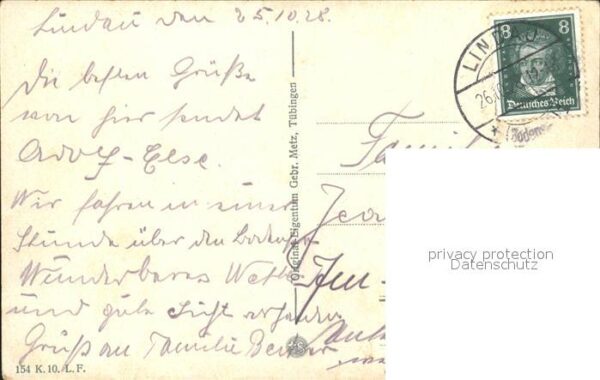 Lindau den 25.10.28.
Die besten Grüße
von hier sendet
Adolf - Else.
Wir fahren in einer
Stunde über den Bodensee
Wunderbares Wetter
und gute Sicht
Gruß an Familie
154 K. 10. L. F.
Original Eigentum Gebr. Metz, Tübingen
8 8
Deutsches Reich
LINDAU
Familie
privacy protection
Datenschutz